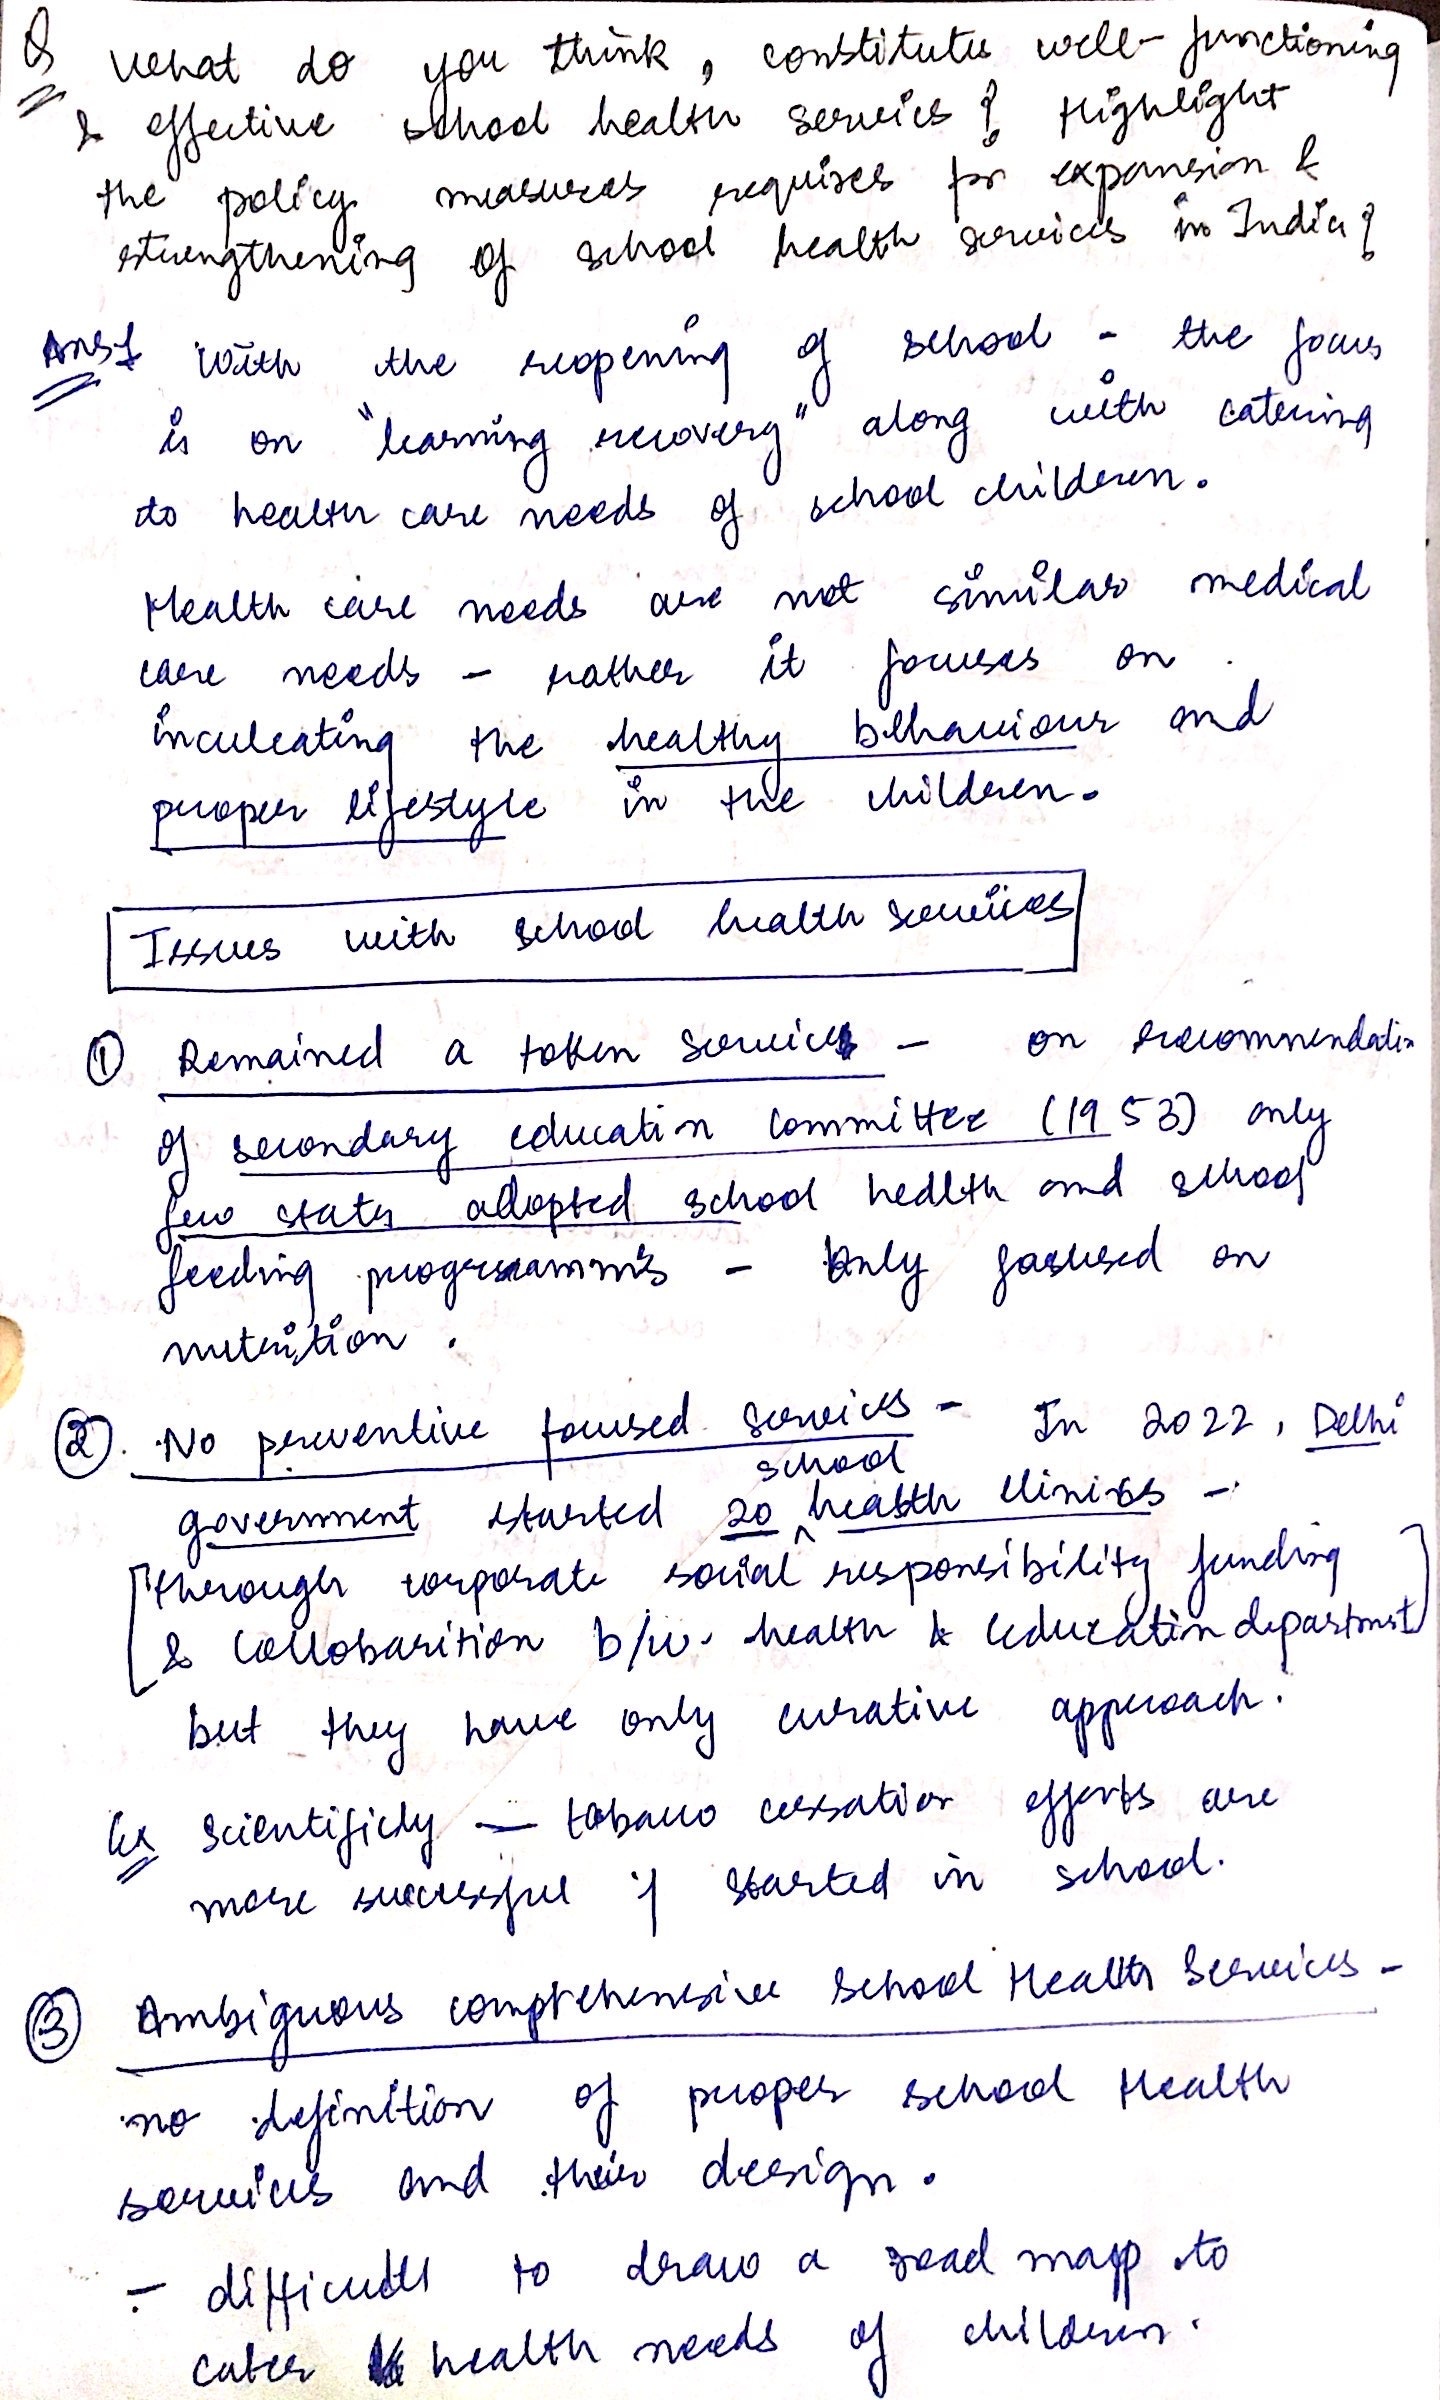 Q What do you think, constitutes well-functioning
& effective school health services? Highlight
the policy measures requires for expansion &
strengthening of school health services in India?
Ans: With the reopening of school - the focus
is on "learning recovery" along with catering
to health care needs of school children.
Health care needs are not similar medical
care needs - rather it focuses on
inculcating the healthy behaviour and
proper lifestyle in the children.
Issues with school health services
① Remained a token services - on recommendation
of secondary education committee (1953) only
few states adopted school health and school
feeding programms - only focused on
nutrition.
②. No preventive focused services - In 2022, Delhi
school
government started 20 ^ health clinics -
[through corporate social responsibility funding
& collobarition b/w. health & education department]
but they have only curative approach.
Ex Scientificly - tobacco cessation efforts are
more successful if started in school.
③ Ambiguous comprehensive School Health Services -
no definition of proper school Health
services and their design.
- difficult to draw a road map to
cater health needs of children.